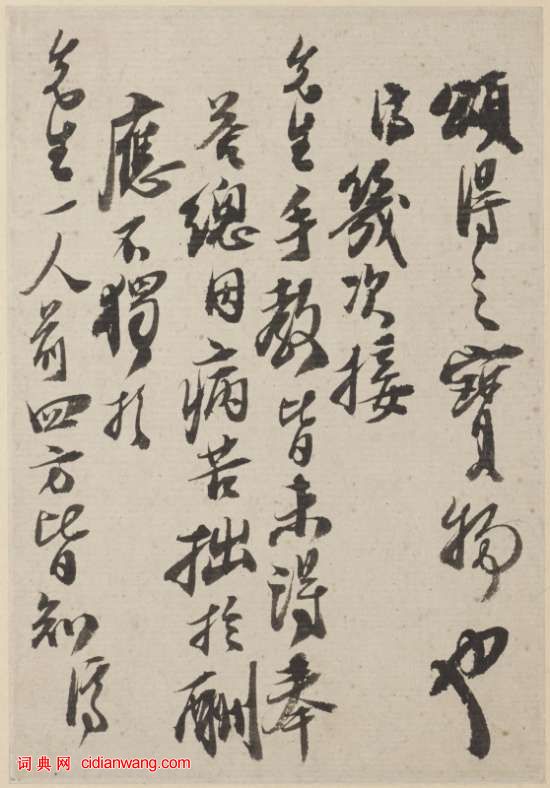 頌得之寶物也
濟幾次接
先生手教皆未得奉
答總因病苦拙於酬
應不獨於
先生一人前四方皆知濟
词典网 cidianwang.com